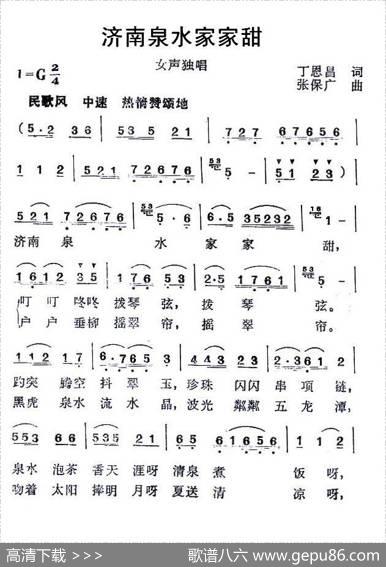 济南泉水家家甜
女声独唱
1=G 2/4
丁恩昌 词
张保广 曲
民歌风 中速 热情赞颂地
(5·2 36 | 535 21 | 727 67656 |
112 | 72676 | 5 51 23)
521 72676 | 5·6 | 6·5 35232 | 1-
济南 泉 水 家 家 甜,
1612 35 | 1276 5 | 2·5 1761 | 5-
叮 叮 咚咚 拨 琴 弦, 拨 琴 弦。
户 户 垂柳 摇 翠 帘, 摇 翠 帘。
112 17 | 6·765 3 | 4433 23 | 2·361 2
趵突 腾空 抖 翠 玉, 珍珠 闪闪 串 项 链,
黑虎 泉水 流 水 晶, 波光 粼粼 五 龙 潭,
553 66
泉水 泡茶 香天 涯呀 清泉 煮 饭 呀,
吻着 太阳 捧明 月呀 夏送 清 凉 呀,
高清下载 >>>
歌谱八六 www.gepu86.com